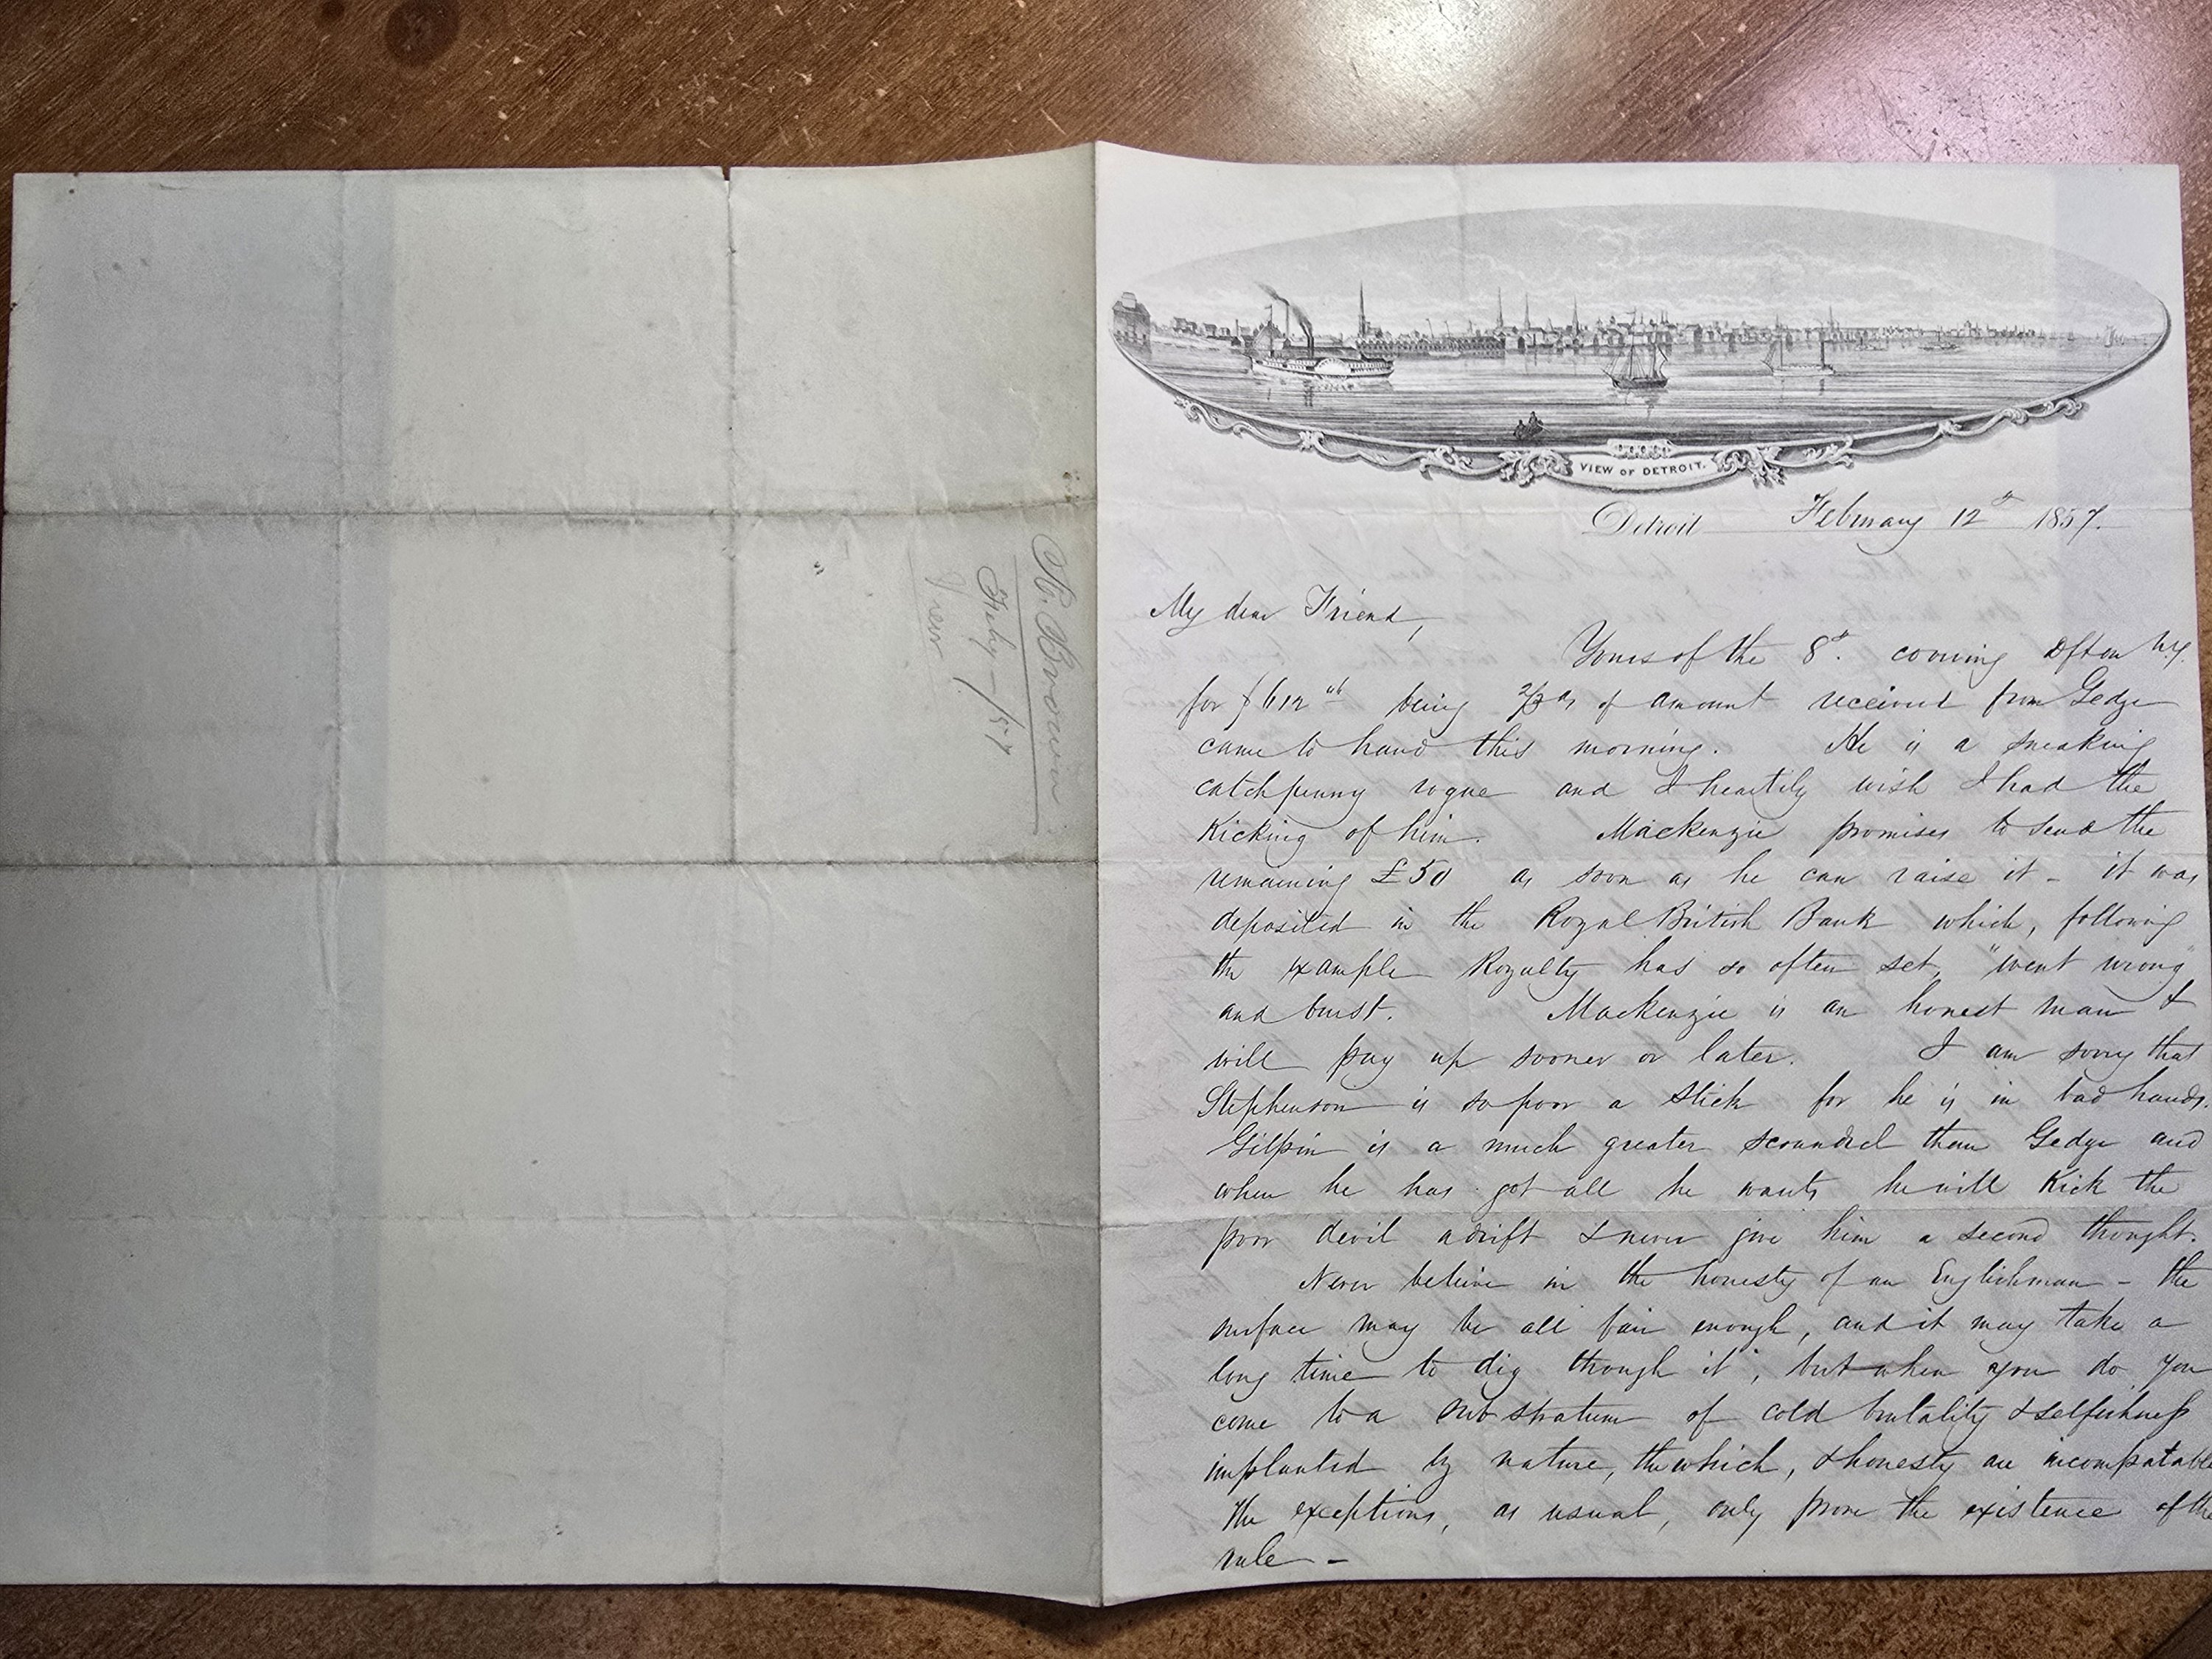 H. Brown
Feby - /57
VIEW OF DETROIT.
Detroit February 12th 1857.
My dear Friend,
Yours of the 8th. covering Dft on N.Y.
for $612 being of amount received from Gedge
came to hand this morning. He is a sneaking
catchpenny rogue and I heartily wish I had the
Kicking of him. Mackenzie promises to send the
remaining £50 as soon as he can raise it - it was
deposited in the Royal British Bank which, following
the example Royalty has so often set, "went wrong"
and burst. Mackenzie is an honest man &
will pay up sooner or later. I am sorry that
Stephenson is so poor a stick for he is in bad hands.
Gilpin is a much greater scoundrel than Gedge and
when he has got all he wants he will Kick the
poor devil adrift & never give him a second thought.
Never believe in the honesty of an Englishman - the
surface may be all fair enough, and it may take a
long time to dig through it, but when you do you
come to a substratum of cold brutality & selfishness
implanted by nature, the which, & honesty are incompatable
The exceptions, as usual, only prove the existence of the
rule -